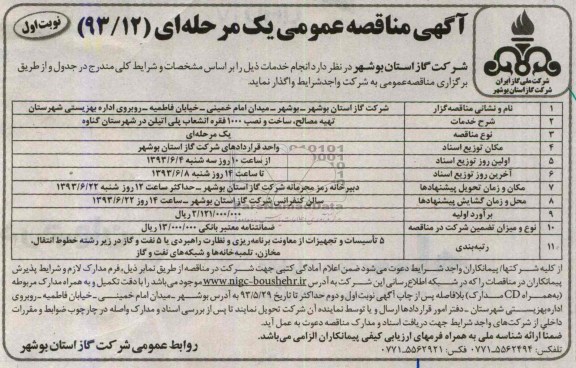 آگهی مناقصه عمومی یک مرحله‌ای (۹۳/۱۲)
نوبت اول
شرکت ملی گاز ایران
شرکت گاز استان بوشهر
شرکت گاز استان بوشهر در نظر دارد انجام خدمات ذیل را بر اساس مشخصات و شرایط کلی مندرج در جدول و از طریق
برگزاری مناقصه عمومی به شرکت واجد شرایط واگذار نماید.
۱ نام و نشانی مناقصه‌گزار شرکت گاز استان بوشهر ـ بوشهر ـ میدان امام خمینی ـ خیابان فاطمیه ـ روبروی اداره بهزیستی شهرستان
۲ شرح خدمات تهیه مصالح، ساخت و نصب ۱۰۰۰ فقره انشعاب پلی اتیلن در شهرستان گناوه
۳ نوع مناقصه یک مرحله‌ای
۴ مکان توزیع اسناد واحد قراردادهای شرکت گاز استان بوشهر
۵ اولین روز توزیع اسناد از ساعت ۱۰ روز سه شنبه ۱۳۹۳/۶/۴
۶ آخرین روز توزیع اسناد تا ساعت ۱۴ روز شنبه ۱۳۹۳/۶/۸
۷ مکان و زمان تحویل پیشنهادها دبیرخانه رمز محرمانه شرکت گاز استان بوشهر ـ حداکثر ساعت ۱۲ روز شنبه ۱۳۹۳/۶/۲۲
۸ محل و زمان گشایش پیشنهادها سالن کنفرانس شرکت گاز استان بوشهر ـ ساعت ۱۴ روز ۱۳۹۳/۶/۲۲
۹ برآورد اولیه ۲/۱۲۱/۰۰۰/۰۰۰ ریال
۱۰ نوع و میزان تضمین شرکت در مناقصه ضمانتنامه معتبر بانکی ۱۳/۰۰۰/۰۰۰ ریال
۱۱ رتبه‌بندی ۵ تأسیسات و تجهیزات از معاونت برنامه‌ریزی و نظارت راهبردی یا ۵ نفت و گاز در زیر رشته خطوط انتقال،
مخازن، تلمبه‌خانه‌ها و شبکه‌های نفت و گاز
از کلیه شرکتها/ پیمانکاران واجد شرایط دعوت می‌شود ضمن اعلام آمادگی کتبی جهت شرکت در مناقصه از طریق نمابر ذیل، فرم مدارک لازم و شرایط پذیرش
پیمانکاران در مناقصات را که در شبکه اطلاع رسانی این شرکت به آدرس www.nigc-boushehr.ir موجود می‌باشد را با دقت تکمیل و به همراه مدارک مربوطه
(به همراه CD مدارک) بلافاصله پس از چاپ آگهی نوبت اول و دوم حداکثر تا تاریخ ۹۳/۵/۲۹ به آدرس بوشهر ـ میدان امام خمینی ـ خیابان فاطمیه ـ روبروی
اداره بهزیستی شهرستان ـ دفتر امور قراردادها ارسال و یا توسط نماینده آن شرکت تحویل نمایند تا پس از بررسی اسناد و مدارک واصله در چارچوب ضوابط و مقررات
داخلی از شرکت‌های واجد شرایط جهت دریافت اسناد و مدارک مناقصه دعوت به عمل آید.
ضمنا ارائه شناسه ملی به همراه فرمهای ارزیابی کیفی پیمانکاران الزامی می‌باشد.
تلفن: ۵۵۶۲۴۹۴-۰۷۷۱ فکس: ۵۵۶۲۹۲۱-۰۷۷۱
روابط عمومی شرکت گاز استان بوشهر